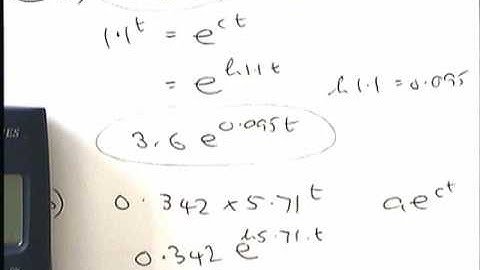 1.1^t = e^ct
= e^ln1.1t ln1.1 = 0.095
3.6 e^0.095t
b) 0.342 x 5.71^t ae^ct
0.342 e^ln5.71.t